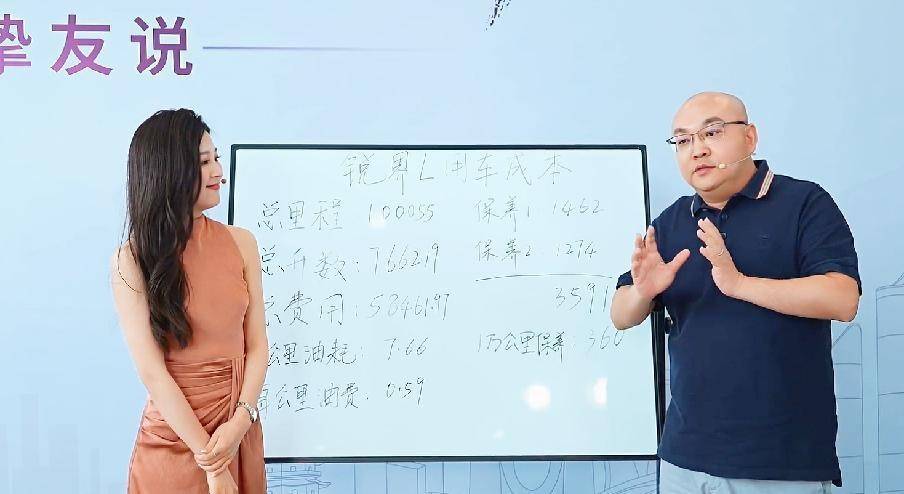 挚友说
锐界L用车成本
总里程 100055
保养1: 1462
总升数: 7662.19
保养2: 1274
总费用: 58461.97
3591
公里油耗: 7.66
1万公里保养: 360
每公里油费: 0.59